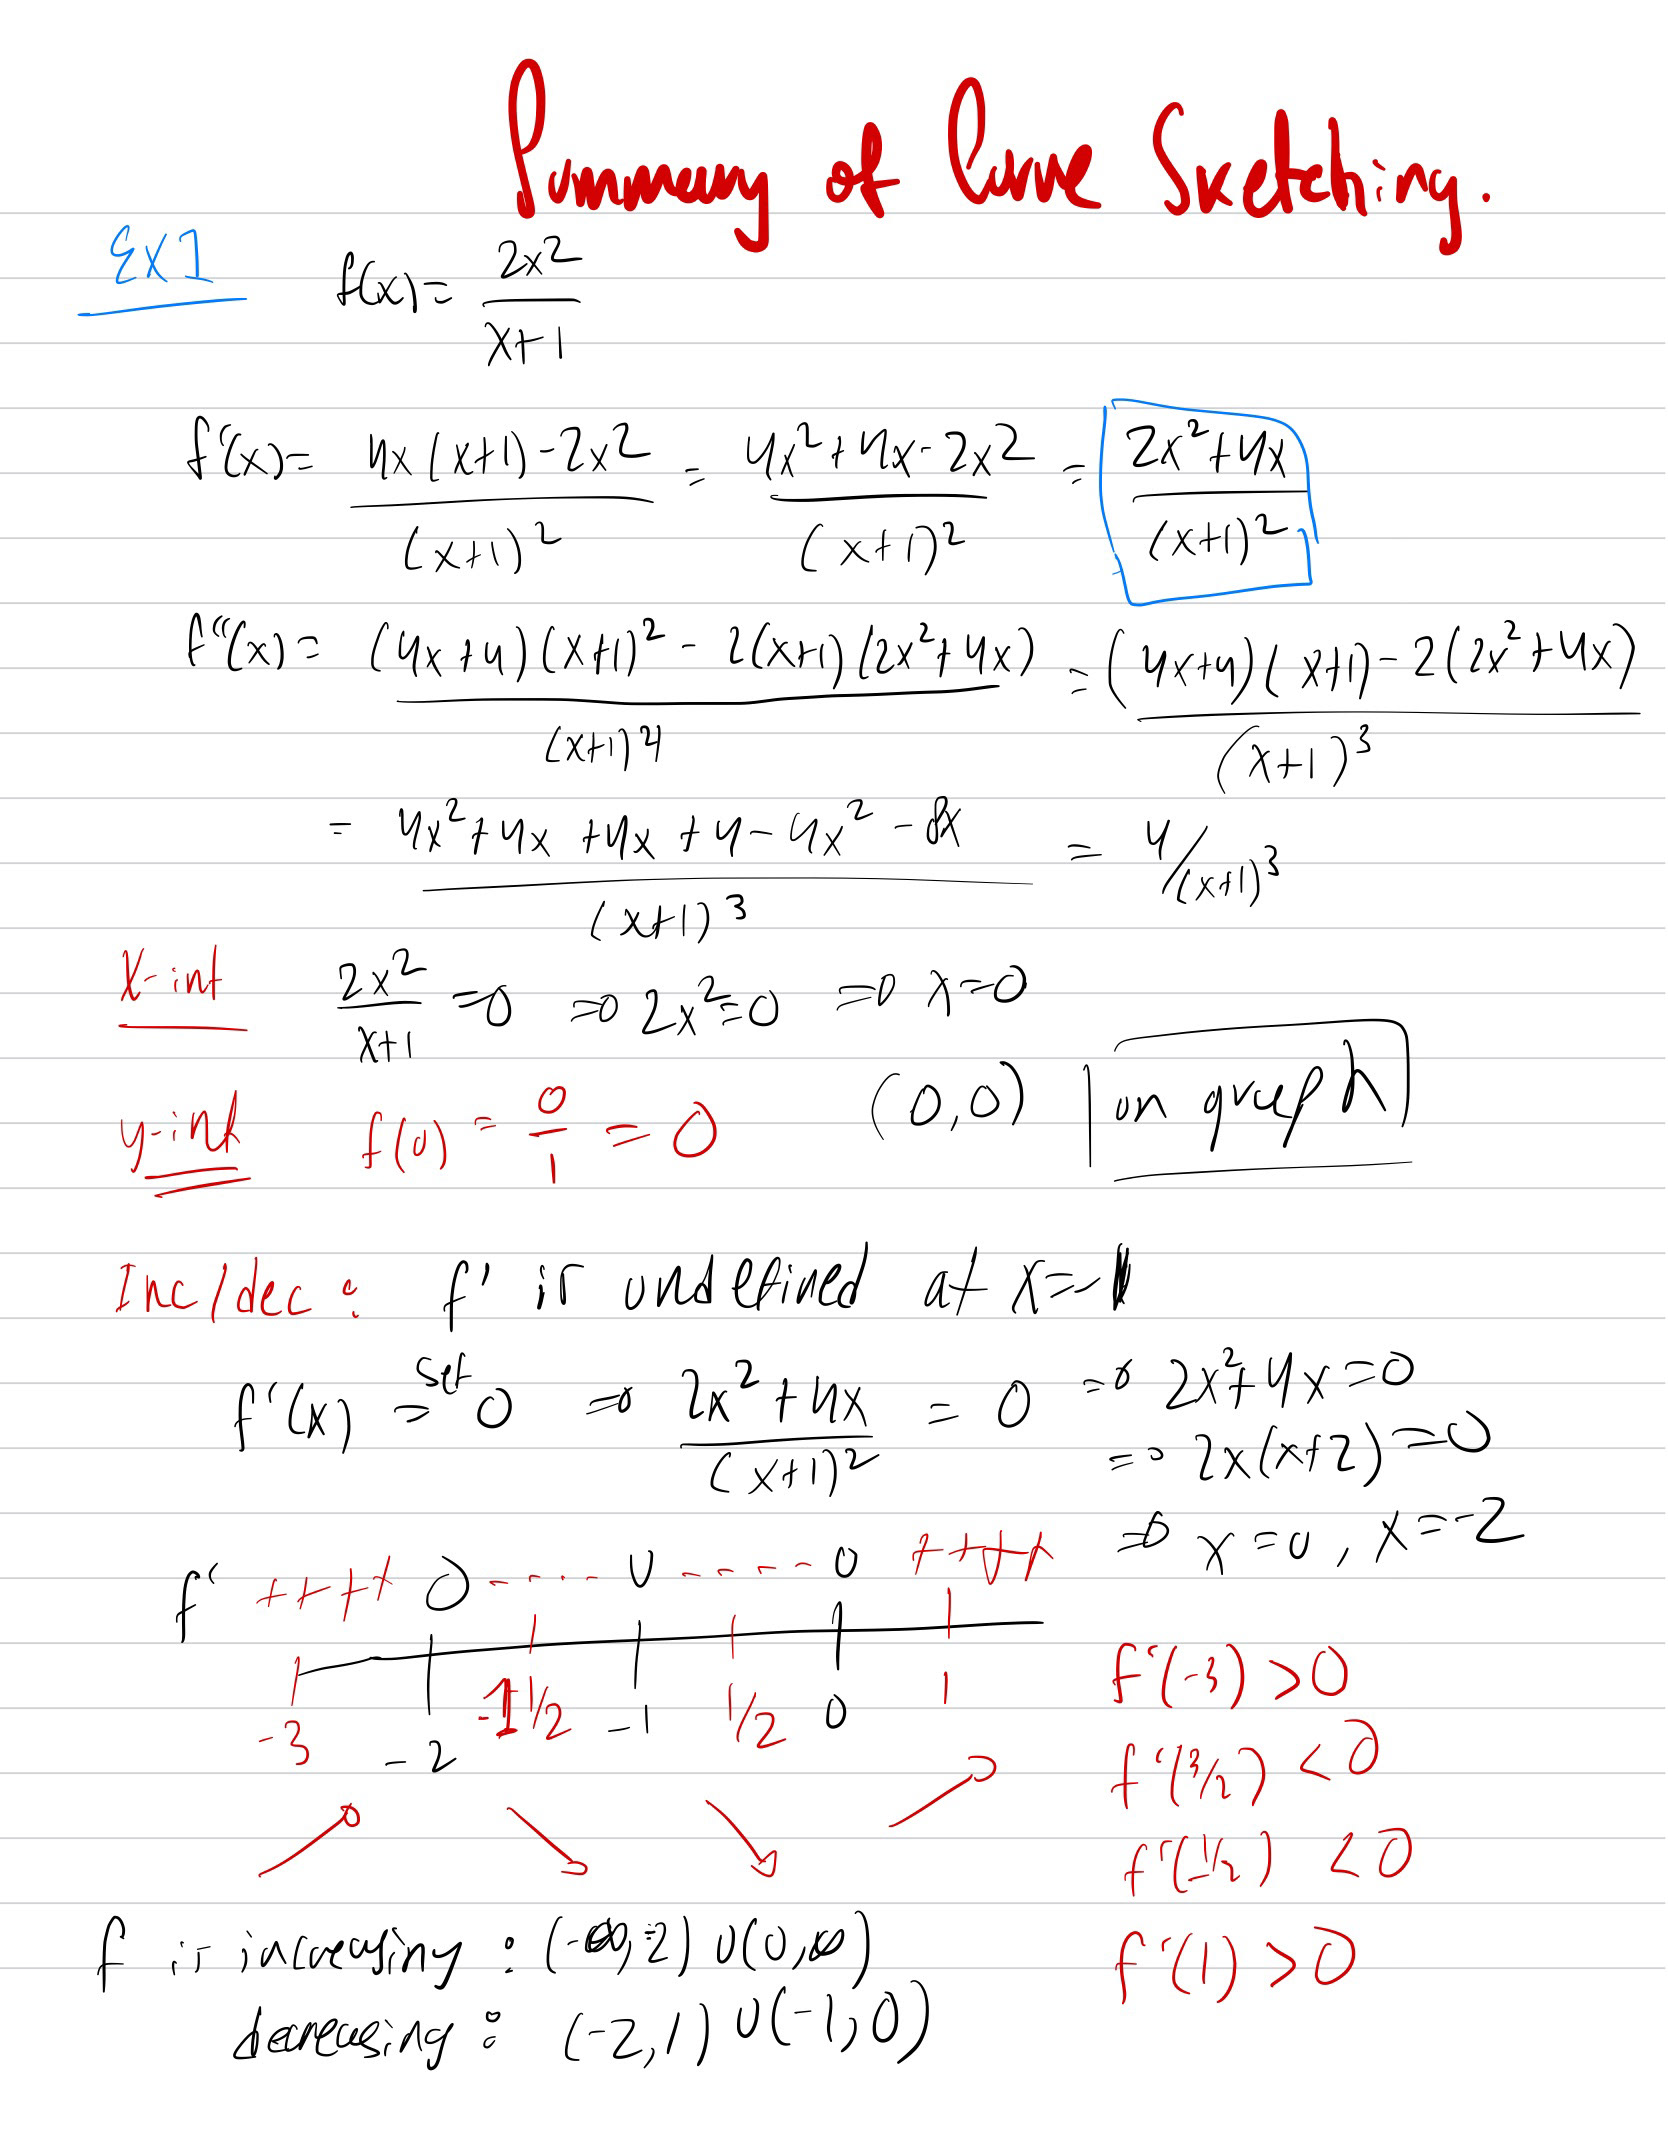 Summary of Curve Sketching.
EX1 f(x) = 2x²/(x+1)
f'(x) = (4x(x+1) - 2x²)/(x+1)² = (4x²+4x-2x²)/(x+1)² = (2x²+4x)/(x+1)²
f''(x) = ((4x+4)(x+1)² - 2(x+1)(2x²+4x))/(x+1)⁴ = ((4x+4)(x+1) - 2(2x²+4x))/(x+1)³
= (4x²+4x+4x+4-4x²-8x)/(x+1)³ = 4/(x+1)³
X-int 2x²/(x+1) = 0 ⇒ 2x² = 0 ⇒ x = 0
y-int f(0) = 0/1 = 0 (0,0) on graph
Inc/dec : f' is undefined at x=-1
f'(x) set= 0 ⇒ (2x²+4x)/(x+1)² = 0 ⇒ 2x²+4x=0
⇒ 2x(x+2)=0
⇒ x=0, x=-2
f' ++++ 0 ---- U ---- 0 ++++
-3 -2 -1 1/2 -1 1/2 0 1
f'(-3) > 0
f'(3/2) < 0
f'(-1/2) < 0
f'(1) > 0
f is increasing : (-∞,-2) U (0,∞)
decreasing : (-2,1) U (-1,0)